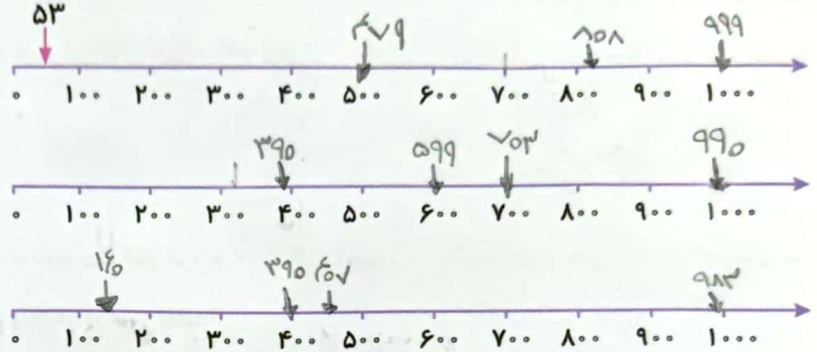 ۵۳ ۴۷۹ ۸۵۸ ۹۹۹
۰ ۱۰۰ ۲۰۰ ۳۰۰ ۴۰۰ ۵۰۰ ۶۰۰ ۷۰۰ ۸۰۰ ۹۰۰ ۱۰۰۰
۳۹۵ ۵۹۹ ۷۵۳ ۹۹۵
۰ ۱۰۰ ۲۰۰ ۳۰۰ ۴۰۰ ۵۰۰ ۶۰۰ ۷۰۰ ۸۰۰ ۹۰۰ ۱۰۰۰
۱۴۵ ۳۹۵ ۴۵۷ ۹۸۳
۰ ۱۰۰ ۲۰۰ ۳۰۰ ۴۰۰ ۵۰۰ ۶۰۰ ۷۰۰ ۸۰۰ ۹۰۰ ۱۰۰۰